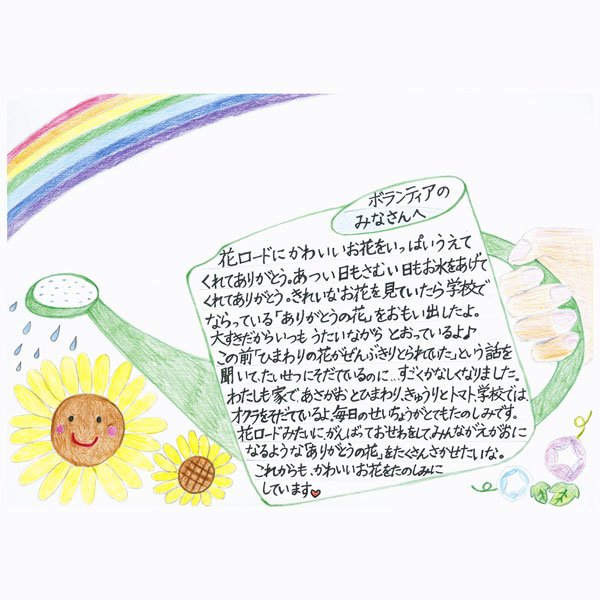 ボランティアの
みなさんへ
花ロードにかわいいお花をいっぱいうえて
くれてありがとう。あつい日もさむい日もお水をあげて
くれてありがとう。きれいなお花を見ていたら学校で
ならっている「ありがとうの花」をおもい出したよ。
大すきだからいつもうたいながらとおっているよ♪
この前「ひまわりの花がぜんぶきりとられていた」という話を
聞いて、たいせつにそだてているのに…すごくかなしくなりました。
わたしも家で、あさがおとひまわり、きゅうりとトマト、学校では、
オクラをそだてているよ。毎日のせいちょうがとてもたのしみです。
花ロードみたいに、がんばっておせわをして、みんながえがおに
なるような「ありがとうの花」をたくさんさかせたいな。
これからも、かわいいお花をたのしみに
しています。❤